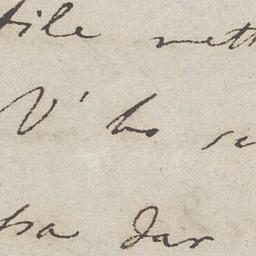 tile mett
V' ho sc
ssa Dar